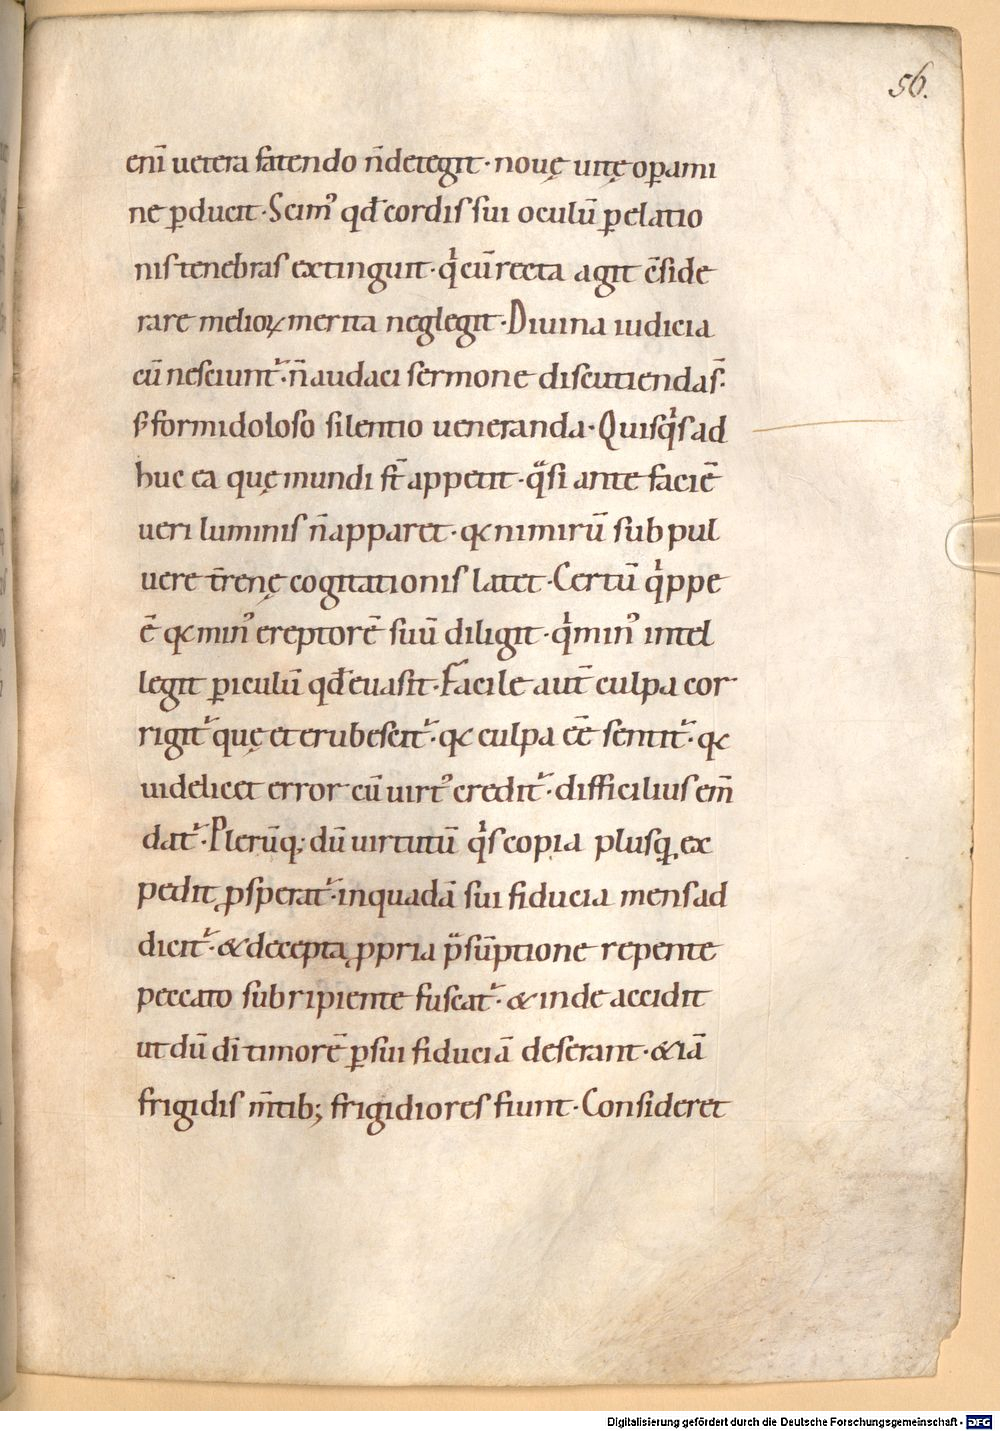 56.
enī uetera fatendo n̄detegit· nouę uitę oꝑami
ne ꝑducit· Scim᾽ qđ cordis sui oculū ꝑ elatio
nis tenebras extinguit· qͥ cū recta agit c̄side
rare melioꝝ merita neglegit· Diuina iudicia
cū nesciunt᷑· n̄ audaci sermone discutiendas̄·
s; formidoloso silentio ueneranda· Quisqͥs ad
huc ea quę mundi st̄ appetit· qͣsi ante faciē
ueri luminis n̄ apparet· qꝛ nimirū sub pul
uere t̄renę cogitationis latet· Certū qͥppe
ē qꝛ min᾽ ereptorē suū diligit· qͥ min᾽ intel
legit ꝑiculū qđ euasit· Facile aut̄ culpa cor
rigit᷑ quę et erubescit᷑· qꝛ culpa eē sentit᷑· qꝛ
uidelicet error cū uirt᾽ credit᷑· difficilius em̄
dat᷑· Plerūq; dū uirtutū qͥs copia plusqꝫ ex
pedit ꝓsperat᷑· in quadā sui fiducia mens ad
dicit᷑· & decepta ꝓpria p̄sūptione repente
peccato subripiente fuscat᷑· & inde accidit
ut dū dī timorē ꝑ sui fiduciā deserant· & iā
frigidis m̄tib; frigidiores fiunt· Consideret
Digitalisierung gefördert durch die Deutsche Forschungsgemeinschaft - DFG